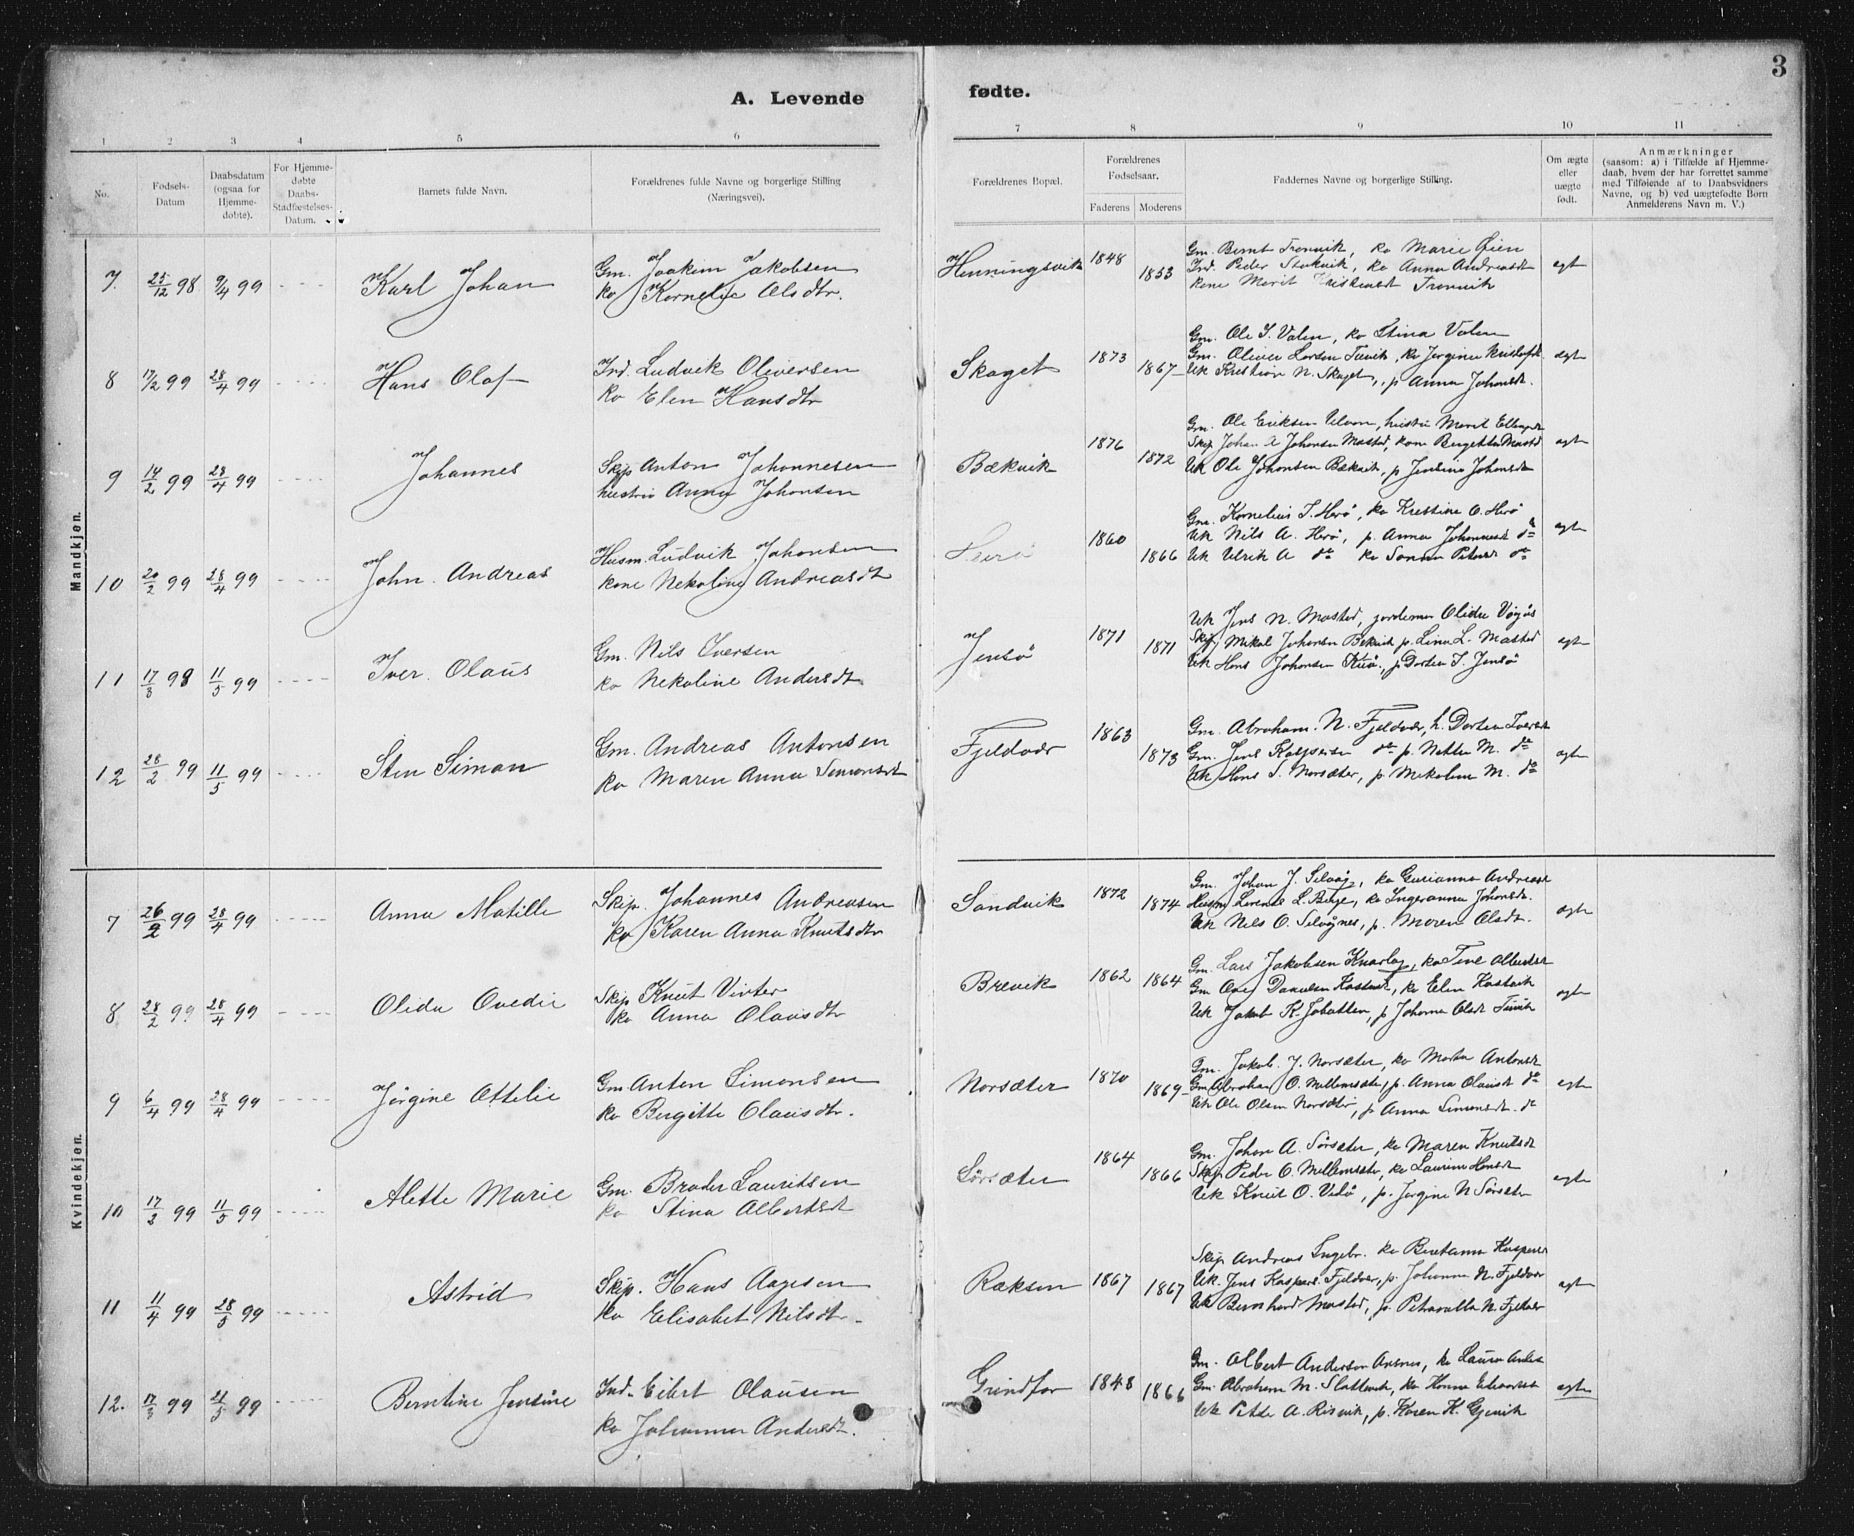 3
A. Levende fødte.
1 2 3 4 5 6 7 8 9 10 11
No.
Fødsels-Datum
Daabsdatum (ogsaa for Hjemme-døbte).
For Hjemme-døbte Daabs-Stadfæstelses-Datum.
Barnets fulde Navn.
Forældrenes fulde Navne og borgerlige Stilling (Næringsvei).
Forældrenes Bopæl.
Forældrenes Fødselsaar.
Faderens Moderens
Faddernes Navne og borgerlige Stilling.
Om ægte eller uægte født.
Anmærkninger
(saasom: a) i Tilfælde af Hjemme-
daab, hvem der har forrettet samme
med Tilføiende af to Daabsvidners
Navne, og b) ved uægtefødte Børn
Anmelderens Navn m. V.)
Mandkjøn.
7. 25/12 98 9/4 99 Karl Johan
Gm. Joakim Jakobsen
ko Kornelie Olsdtr.
Henningsvik 1848 1853
Gm. Bernt Tronvik, ko Marie Øien
Ind. Peder Stokvik, ko Anna Andreasdt
kone Marit Tronvik
egt
8 17/2 99 28/4 99 Hans Olaf
Ind. Ludvik Oliversen
ko Elen Hansdtr
Skaget 1873 1867
Gm. Ole J. Valen, ko Stina Valen
Gm. Oliver Larsen, ko Jørgine
Uk Kristian N. Skaget, p Anna Johansdt.
egt
9 14/2 99 28/4 99 Johannes
Skip Anton Johannesen
hustru Anna Johansen
Bækvik 1876 1872
Gm. Ole Eriksen Ulvan, hustru Marit
Skip Johan Johansen Mastad, kone Bergitta Mastd
Uk Ole Johansen Bekvik, p Jensine Johansdt
egt
10 20/2 99 28/4 99 John Andreas
Husm. Ludvik Johansen
kone Nekoline Andreasdt
Herø 1860 1866
Gm. Kornelius J. Herø, ko Kristine O. Herø
Uk Nils A. Herø, p. Anna Johannesdt do
Uk Ulrik A do ko Sanna Petersd do
egt
11 17/3 98 11/5 99 Iver Olaus
Gm. Nils Iversen
ko Nekoline Andersdt
Jensø 1871 1871
Uk Jens N. Mastad, jordemor Olidie Vågås
Skip Mikal Johansen Bekvik p. Lina L. Mastad
Uk Hans Johansen Kuø, p Dortea J. Jensø
egt
12 28/2 99 11/5 99 Sten Simon
Gm. Andreas Antonsen
ko Maren Anna Simonsdt
Fjeldvær 1863 1873
Gm. Abraham N. Fjeldvær, h. Dortea Iversdt
Gm. Jens Kaspersen do p. Netta M. do
Uk Hans S. Norsæter, p Mekoline M. do
egt
Kvindekjøn.
7 26/2 99 28/4 99 Anna Matille
Skip. Johannes Andreasen
ko Karen Anna Knutsdtr
Sandvik 1872 1874
Gm. Johan J. Selvåg, ko Gurianna Andreasd
Husm Lorents L. Berge, ko Ingeranna Johansdt.
Uk Nels O. Selvågnes, p. Maren Olsdt.
egte
8 28/2 99 28/4 99 Olida Ovedie
Skip Knut Vivter
ko Anna Olausdtr
Brevik 1862 1864
Gm. Lars Jakobsen Knarlag, ko Tine Albertsd
Gm Ove Danielsen Kastvik, ko Elen Kastvik
Uk Jakob K. Jøbotten, p Johanna Olsdt
egte
9 6/4 99 28/4 99 Jørgine Ottelie
Gm Anton Simonsen
ko Bergitte Olausdtr.
Norsæter 1870 1869
Gm. Jakob J. Norsæter, ko Marta Antonsd
Gm Abraham O. Mellemsæter, p. Anna Olausdt do
Uk Ole Olsen Norsæter, p Anna Simonsdt. do
egte
10 17/3 99 11/5 99 Alette Marie
Gm. Broder Lauritsen
ko Stina Albertsdt
Sørsæter 1864 1866
Gm. Johan A. Sørsæter, ko Maren Knutsdt
Skip Peder O. Mellemsæter, ko Laurine Hansdt
Uk Knut O. Vedø, p. Jørgine N Sørsæter
egte
11 11/4 99 28/5 99 Astrid
Skip. Hans Aagesen
ko Elisabet Nilsdtr.
Ræksen 1867 1867
Skip Andreas Ingebr. ko Beretanna Kaspersd
Uk. Jens Kaspers. Fjeldvær, p. Johanna N. Fjeldvær
Uk Bernhard Mastad, p. Petronella N. Fjeldvær
egt
12. 17/3 99 21/5 99 Berntine Jensine
Ind. Eilert Olausen
ko Johanna Andersdt.
Grindfar 1848 1866
Gm. Albert Andersen Aasnes, ko Laura
Gm. Abraham M. Slatlevik, ko Hanna Edvardsd
Uk Petter A. Risvik, p. Karen K. Gjevik
egte